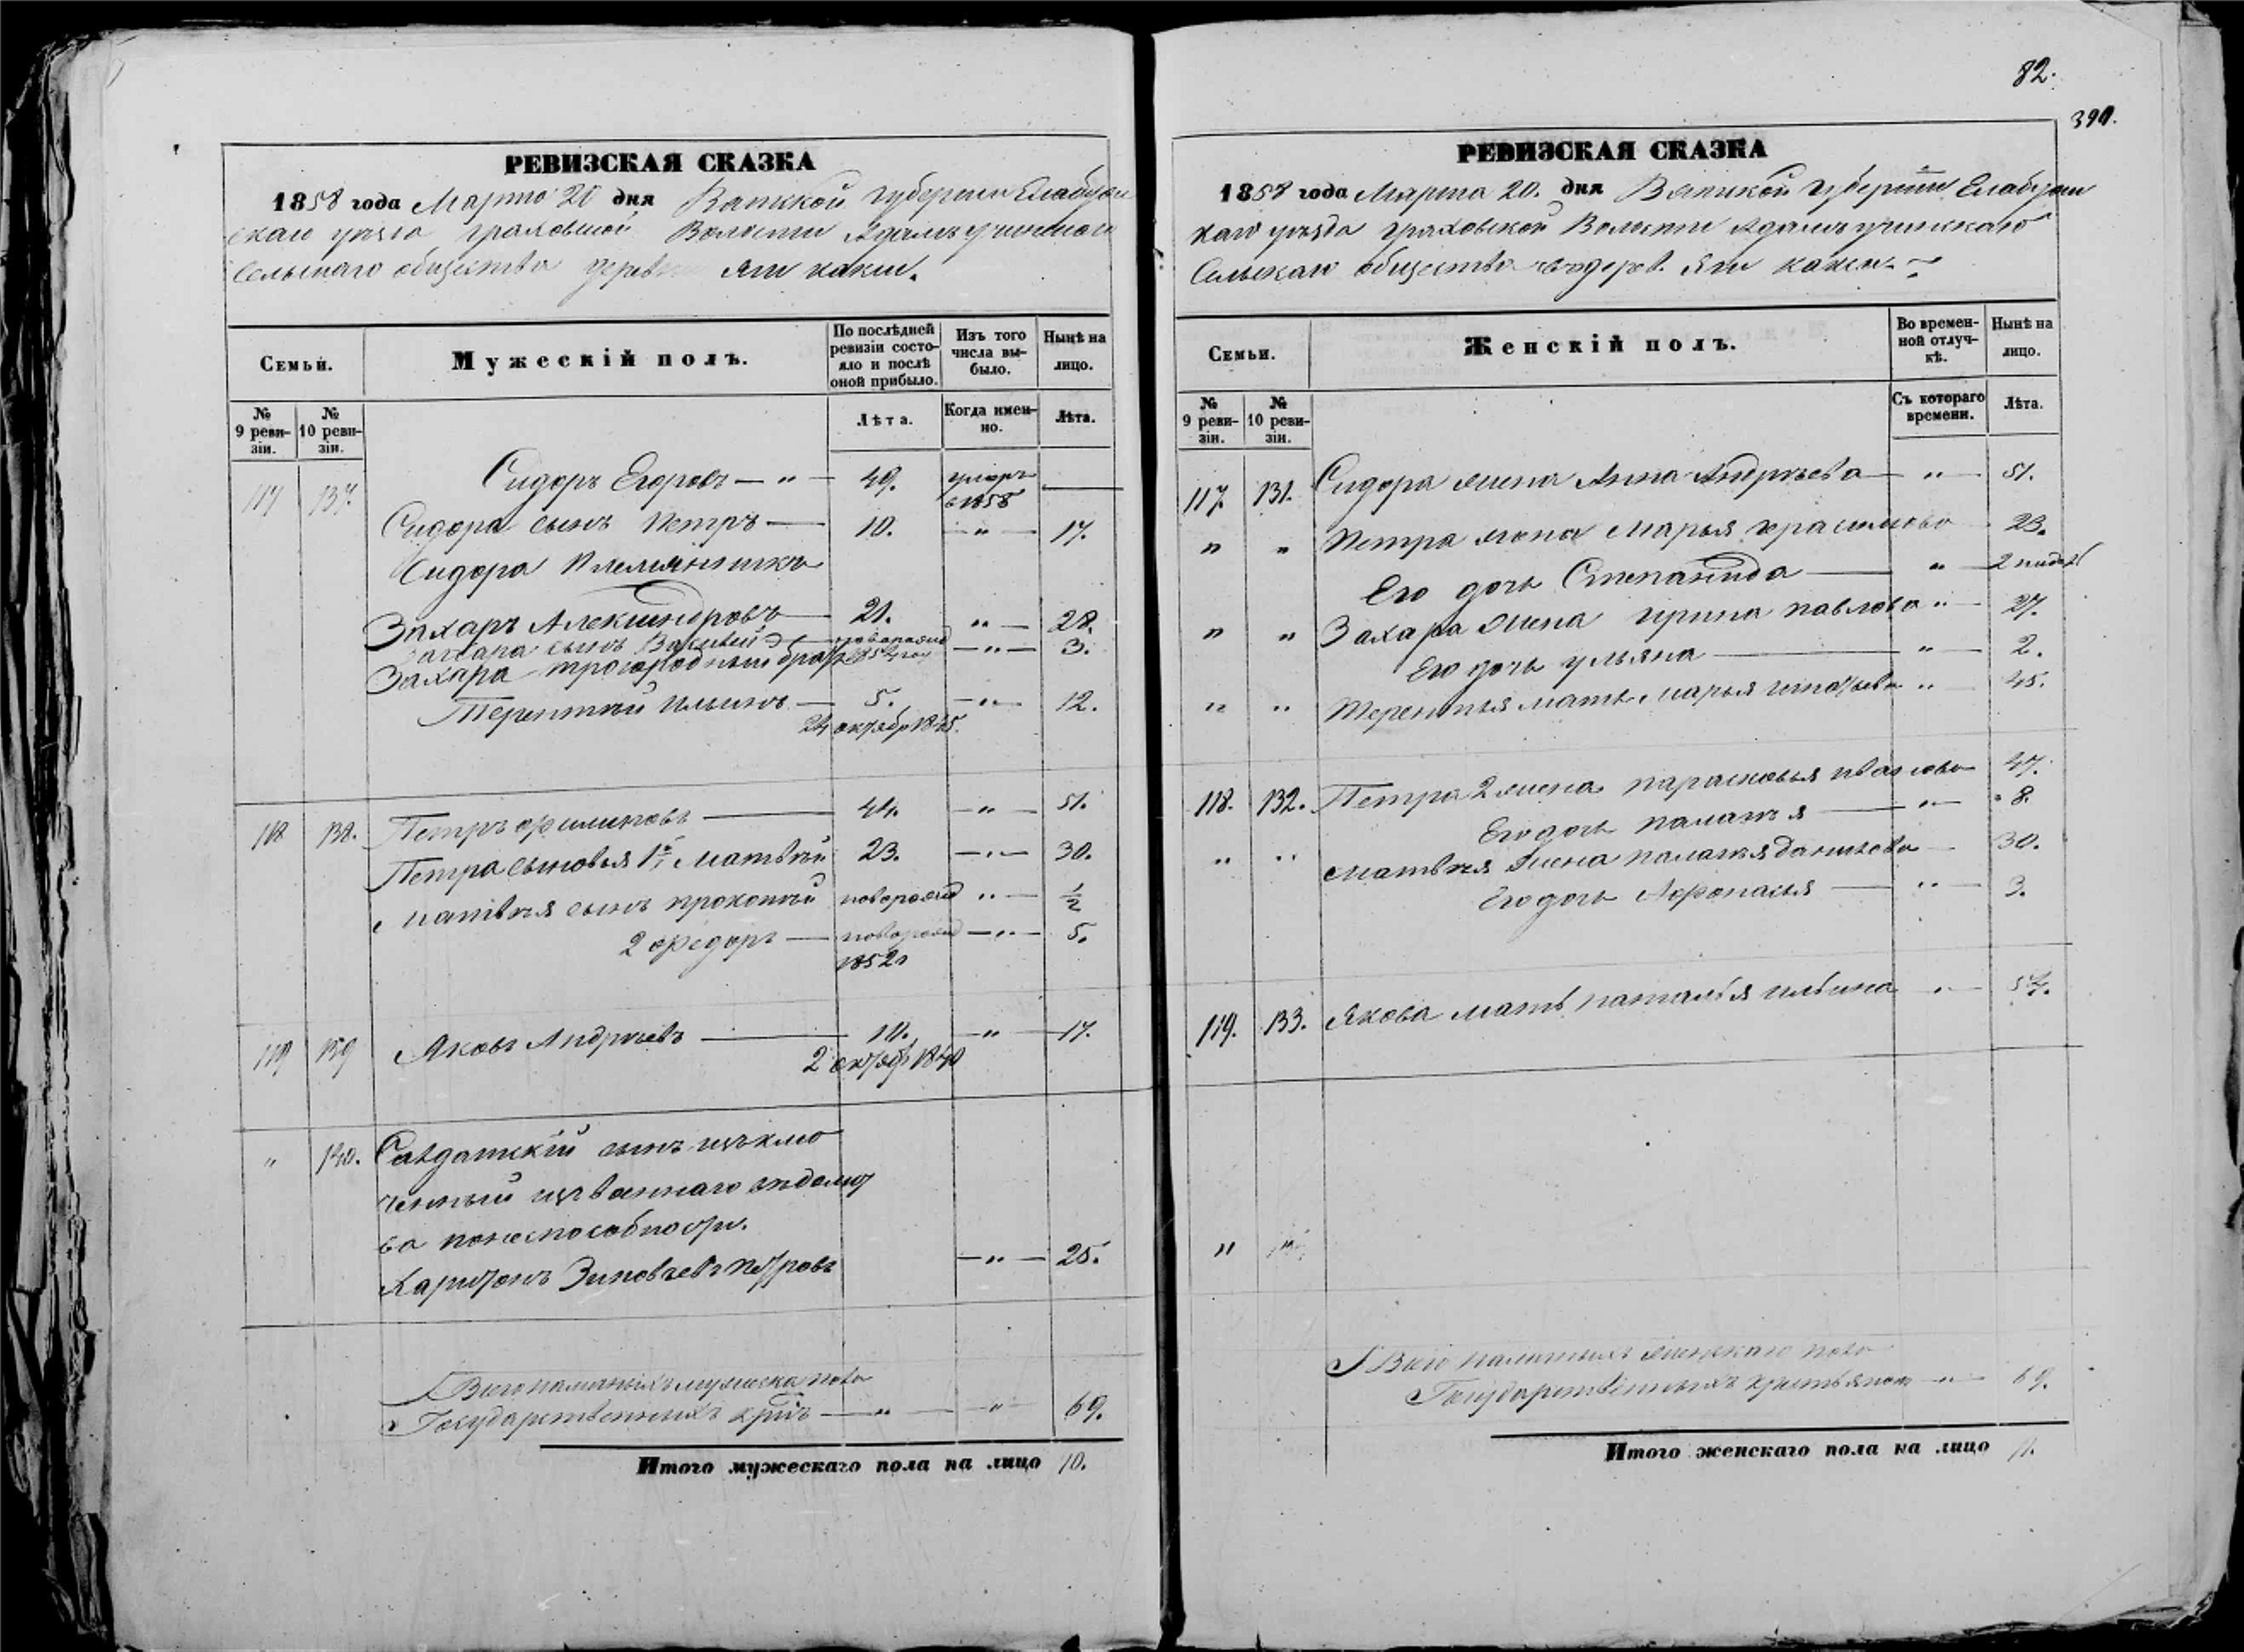 82.
390.
РЕВИЗСКАЯ СКАЗКА
1858 года Марта 20 дня Вятской Губернии Елабуж
скаго уезда Граховской Волости Адамъучинскаго
Сельскаго общества дерев Яги какси.
Семьи. Мужескій полъ. По послѣдней ревизіи состояло и послѣ оной прибыло. Изъ того числа выбыло. Нынѣ на лицо.
№ 9 ревизіи. № 10 ревизіи. Лѣта. Когда именно. Лѣта.
117 137. Сидоръ Егоровъ — " — 49. умеръ в 1858 —
Сидора сынъ Петръ — 10. — " — 17.
Сидора племянникъ
Захаръ Александровъ — 21. " — 28.
Захара сынъ Василий — новорожд — " — 3.
Захара троюродный братъ
Терентий Ильинъ — 5. — " — 12.
24 октябр 1845.
118 138. Петръ Филиповъ — 44. — " — 51.
Петра сыновья 1й Матвѣй 23. — " — 30.
Матвѣя сынъ Прокопий новорожд " — ½
2 Федоръ — новорожд — " — 5.
1852г
119 139 Яковъ Андреевъ — 10. — " — 17.
2 октяб 1840
" 140. Салдатский сынъ исъклю
ченный изъ военнаго
ва по неспособности.
Харитонъ Зиновьевъ Петровъ — " — 25.
Всего наличныхъ мужеска пола
Государственныхъ крас — " — " — 69.
Итого мужескаго пола на лицо 10.
РЕВИЗСКАЯ СКАЗКА
1858 года Марта 20. дня Вятской Губернии Елабуж
скаго уезда Граховской Волости Адамъучинскаго
Сельскаго общества дерев. Яги какси.
Семьи. Женскій полъ. Во временной отлучкѣ. Нынѣ на лицо.
№ 9 ревизіи. № 10 ревизіи. Съ котораго времени. Лѣта.
117. 131. Сидора жена Анна Андреева — " — 51.
" " Петра жена Марья 23.
Его дочь Степанида — " — 2 недел
" " Захара жена Ирина Павлова " — 27.
Его дочь Ульяна — " — 2.
" " Терентья мать Марья " 45.
118. 132. Петра 2 жена Парасковья Иванова 47.
Его дочь Палагья — " — 8.
" " Матвѣя жена Палагья Данилова — 30.
Его дочь Афонасья — " — 3.
119. 133. Якова мать Наталья Ильина " — 57.
"
Всего наличныхъ женскаго пола
Государственныхъ крестьянъ — " — 69.
Итого женскаго пола на лицо 11.